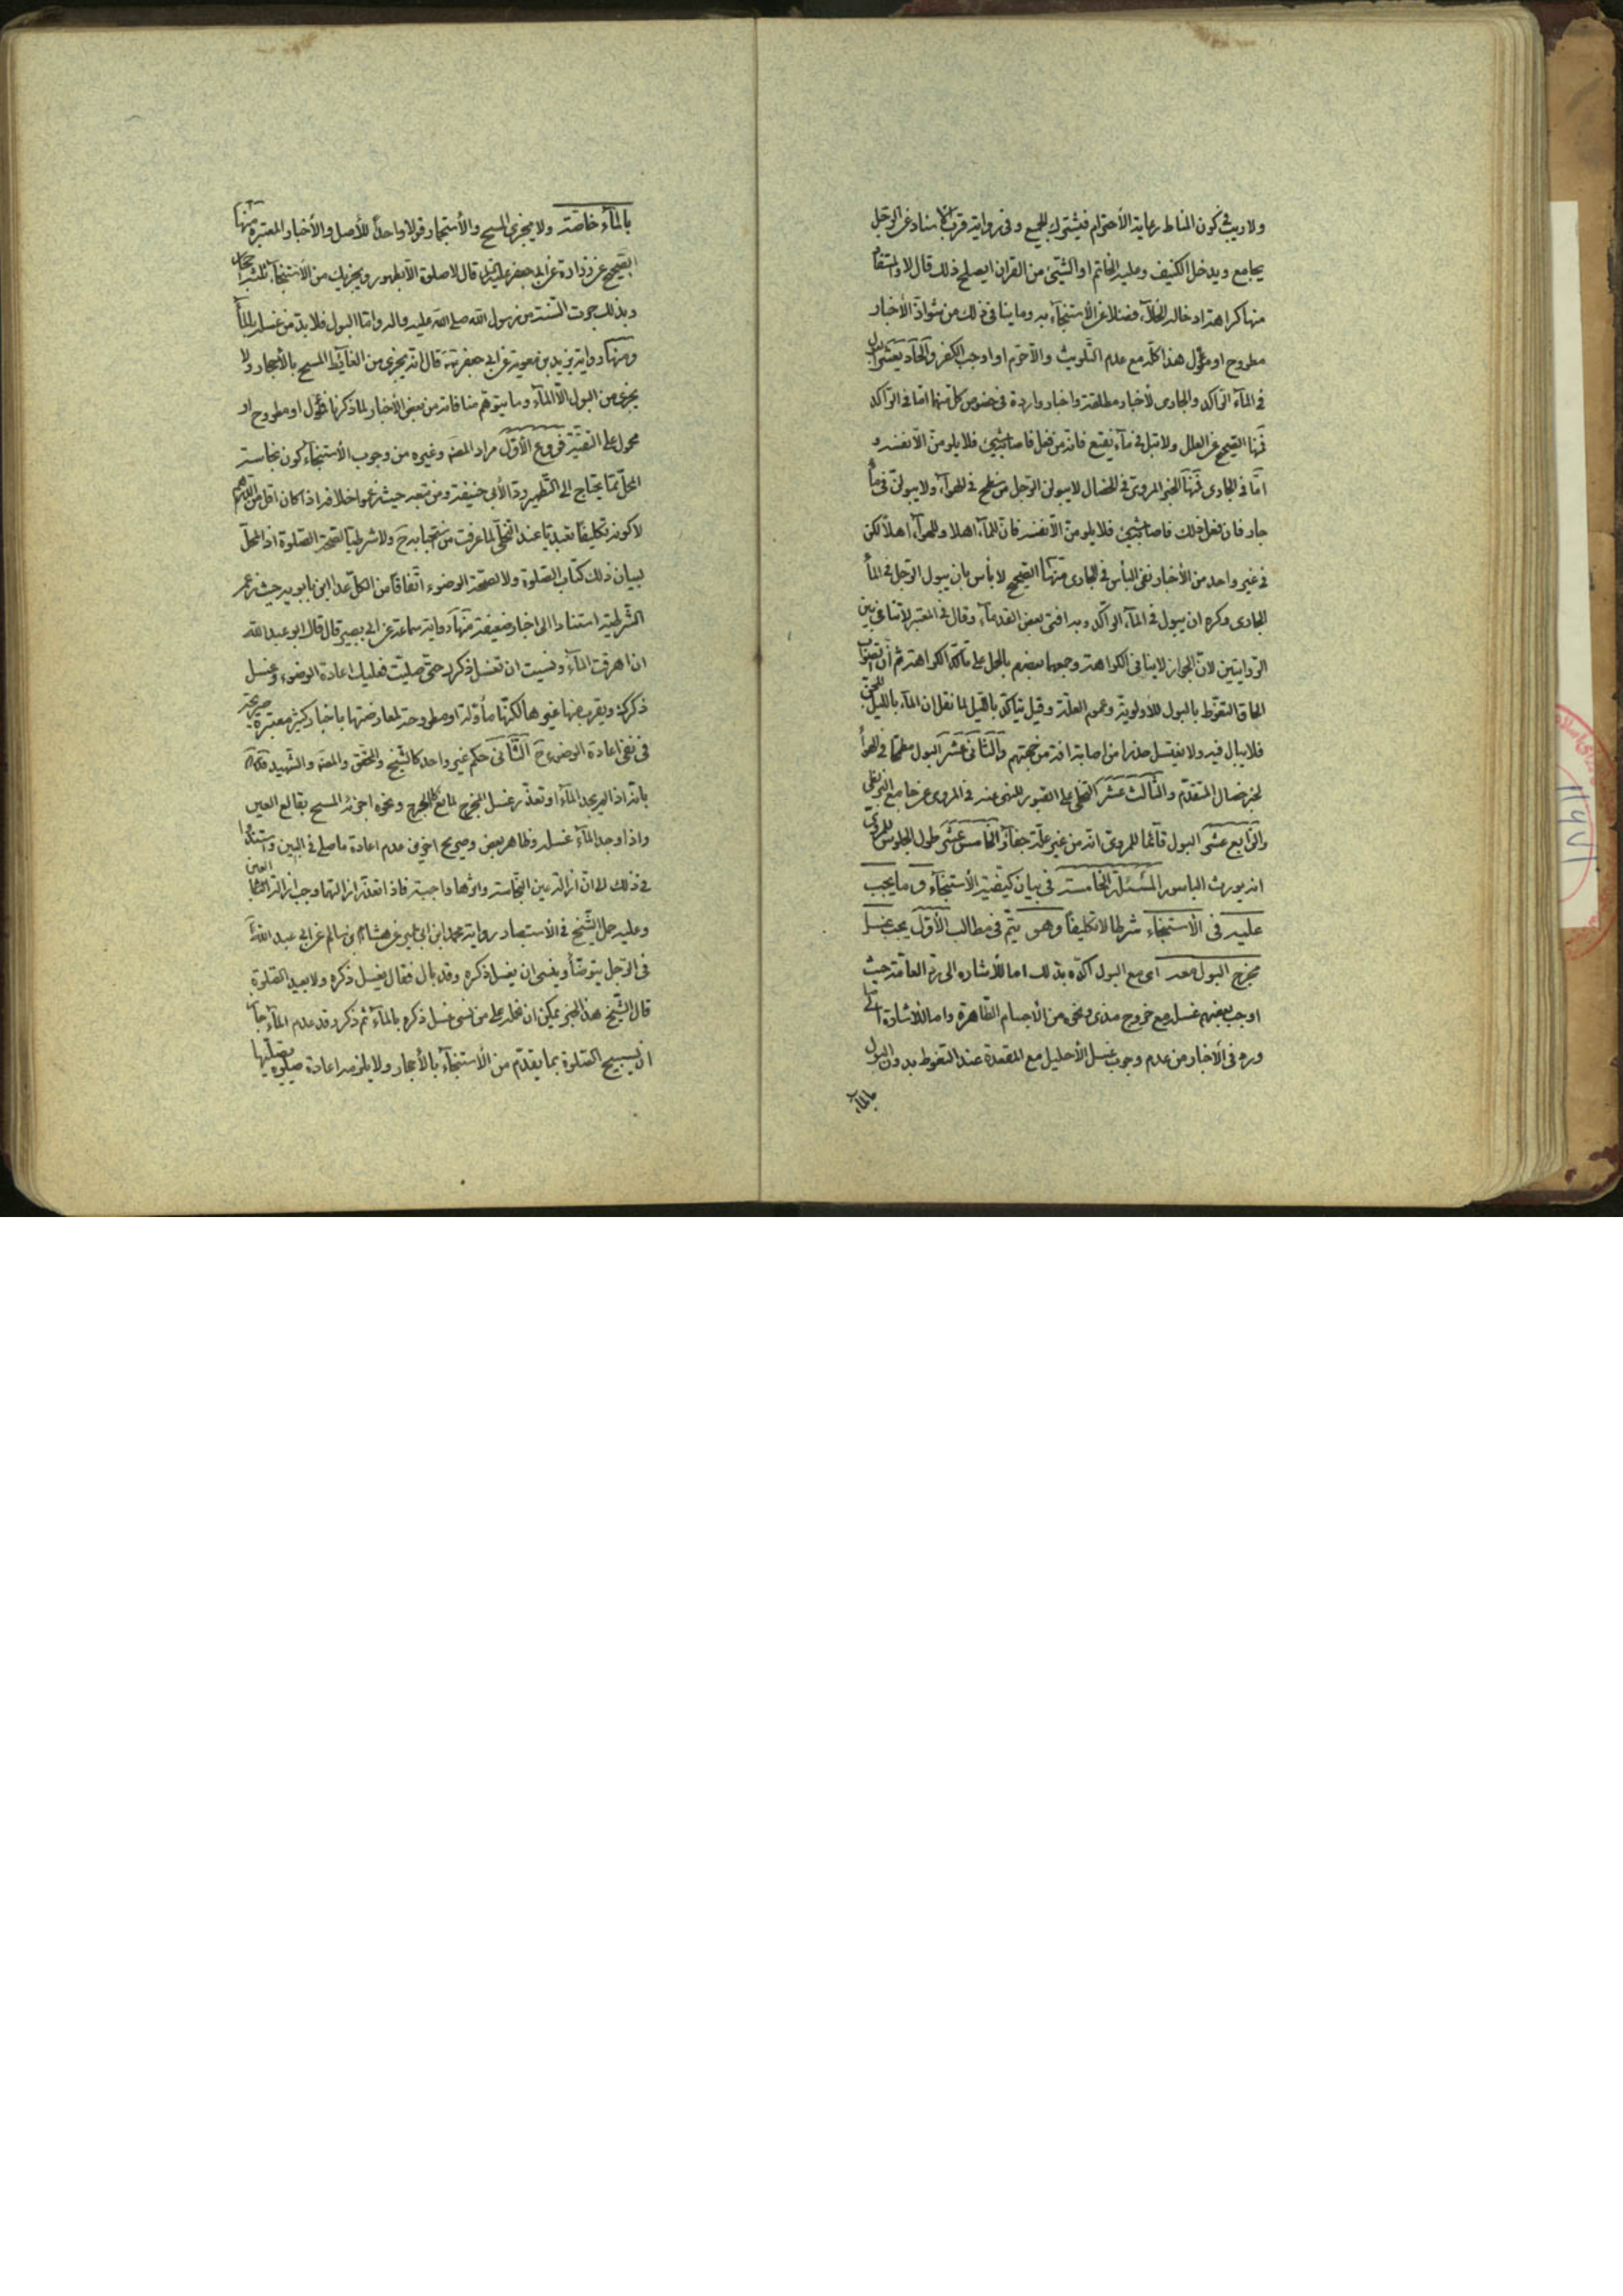 ولا ريب في كون المناط رعاية الأحترام فيشترك الجميع وفي رواية قرب الأسناد عن الرجل
يجامع ويدخل الكنيف وعليه الخاتم او الشيئ من القران ايصلح ذلك قال لا والمستفاد
منها كراهة ادخاله الخلآء فضلا عن الأستنجآء به وما ينافي ذلك من شواذ الأخبار
مطروح او مؤول هذا كله مع عدم التلويث والآ حرم او اوجب الكفر والحادي عشر البول
في المآء الراكد والجاري لأخبار مطلقة واخبار واردة في خصوص كل منهما اما في الراكد
فمنها الصحيح عن العلل ولا تبل في مآء نقيع فانه من فعل فاصابه شيئ فلا يلومن الا نفسه و
اما في الجاري فمنها الخبر المروي في الخصال لا يبولن الرجل من سطح في الهوآء ولا يبولن في مآء
جار فان فعل ذلك فاصابه شيئ فلا يلومن الا نفسه فان للمآء اهلا وللهوآء اهلا لكن
في غير واحد من الأخبار نفي البأس في الجاري منها الصحيح لا بأس بان يبول الرجل في المآء
الجاري وكره ان يبول في المآء الراكد وبه افتى بعض القدمآء وقال في المعتبر لا تنافي بين
الروايتين لان الجواز لا ينافي الكراهة وجمعهما بعضهم بالحمل على تاكد الكراهة ثم ان الصواب
الحاق التغوط بالبول للأولوية وعموم العلة وقيل يتاكد بالليل لما نقل ان المآء بالليل للجن
فلا يبال فيه ولا يغتسل حذرا من اصابة افة من جهتهم والثاني عشر البول مطمحا في الهوآء
لخبر خصال المتقدم والثالث عشر التخلي على القبور للنهي عنه في المروي عن جامع البزنطي
والرابع عشر البول قآئما للمروي انه من غير علة جفآء والخامس عشر طول الجلوس للمروي
انه يورث الباسور المسئلة الخامسة في بيان كيفية الأستنجآء وما يجب
عليه في الأستنجآء شرطا لا تكليفا وهو يتم في مطالب الأول يجب غسل
مخرج البول معه اي مع البول اكده بذلك اما للأشاره الى رد العامة حيث
اوجب بعضهم غسله مع خروج مذي ونحوه من الأجسام الطاهرة واما للأشارة الى ما
ورد في الأخبار من عدم وجوب غسل الأحليل مع المقعدة عند التغوط بدون البول
بالمآء
بالمآء خاصة ولا يجزي المسح والأستجمار قولا واحدا للأصل والأخبار المعتبرة منها
الصحيح عن زرارة عن ابي جعفر عليه السلام قال لا صلوة الا بطهور ويجزيك من الأستنجآء ثلثة احجار
وبذلك جرت السنة من رسول الله صلى الله عليه واله واما البول فلا بد من غسله بالمآء
ومنها رواية يزيد بن معوية عن ابي جعفر انه قال انه يجزي من الغآئط المسح بالأحجار ولا
يجزي من البول الا المآء وما يتوهم منافاته من بعض الأخبار لما ذكرنا فمؤول او مطروح او
محمول على التقية فروع الأول مراد المصنف وغيره من وجوب الأستنجآء كون نجاسة
المحل مما يحتاج الى التطهير ردا لأبي حنيفة ومن تبعه حيث زعموا خلافه اذا كان اقل من الدرهم
لا كونه تكليفا تعبديا عند التخلي لما عرفت من استحبابه ح ولا شرطيا لصحة الصلوة اذ المحل
لبيان ذلك كتاب الصلوة ولا لصحة الوضوء اتفاقا من الكل عدا ابن بابويه حيث زعم
الشرطية استنادا الى اخبار ضعيفة منها رواية سماعة عن ابي بصير قال قال ابو عبد الله
ان اهرقت المآء ونسيت ان تغسل ذكرك حتى صليت فعليك اعادة الوضوء وغسل
ذكرك ويقرب منها غيرها لكنها مأولة او مطروحة لمعارضتها باخبار كثيرة معتبرة صريحة
في نفي اعادة الوضوء ح الثاني حكم غير واحد كالشيخ والمحقق والمصنف والشهيد
بانه اذا لم يجد المآء او تعذر غسل المخرج لمانع كالجرح ونحوه اجزئه المسح بقالع العين
واذا وجد المآء غسله وظاهر بعض وصريح اخرين عدم اعادة ما صلى في البين واستندوا
في ذلك الى ان ازالة عين النجاسة واثرها واجبة فاذا تعذر ازالتهما وجب ازالة العين
وعليه حمل الشيخ في الأستبصار رواية محمد ابن ابي عمير عن هشام بن سالم عن ابي عبد الله
في الرجل يتوضأ وينسى ان يغسل ذكره وقد بال فقال يغسل ذكره ولا يعيد الصلوة
قال الشيخ هذا الخبر يمكن ان نحمله على من نسي غسل ذكره بالمآء ثم ذكر وقد عدم المآء جاز
ان يستبيح الصلوة بما يقدم من الأستنجآء بالأحجار ولا يلزمه اعادة صلوة يصليها